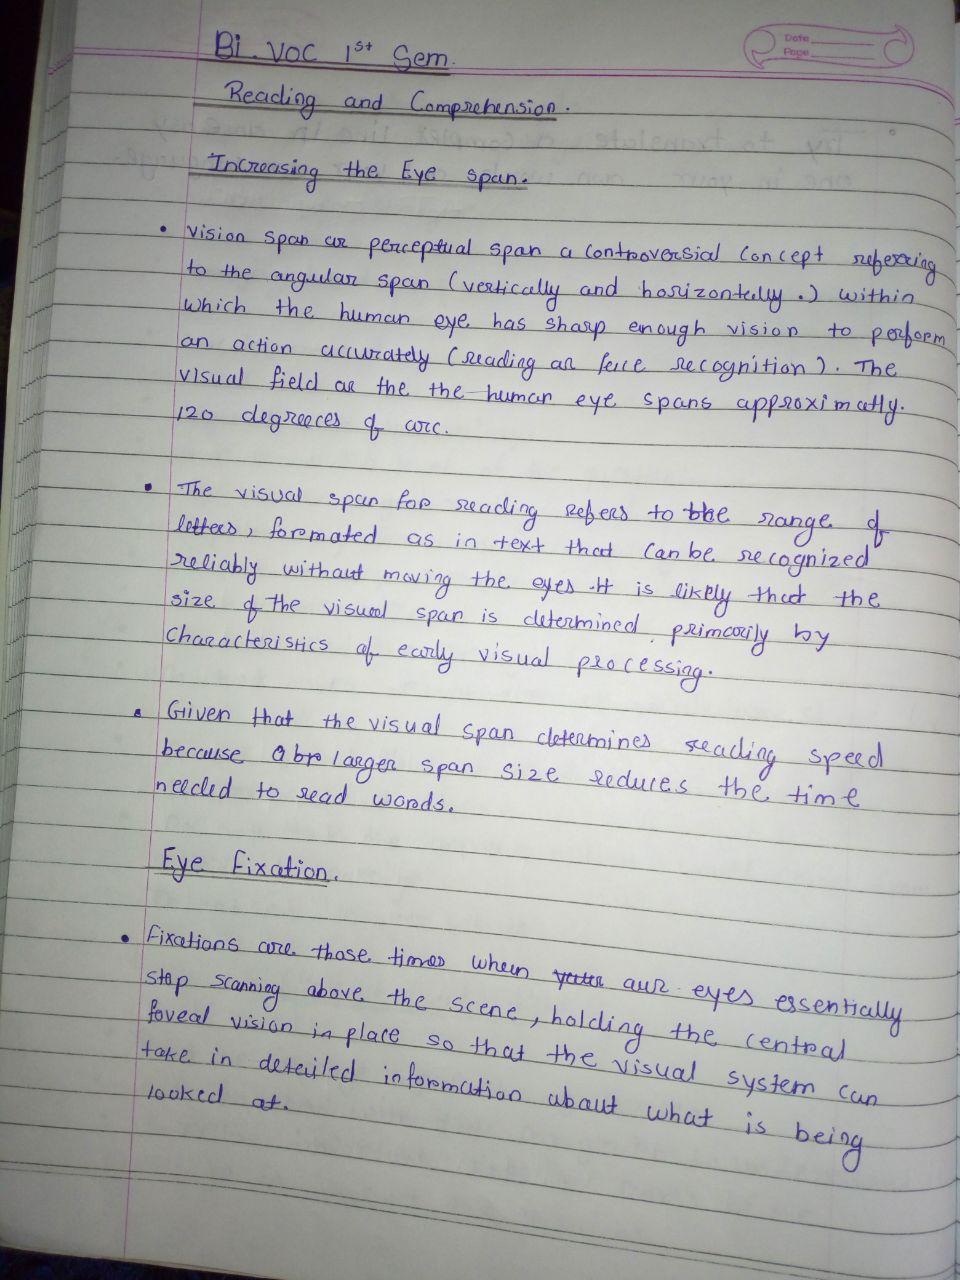 Date
Page
Bi. VOC 1st Sem.
Reading and Comprehension.
Increasing the Eye span.
• Vision span or perceptual span a controversial concept referring
to the angular span (vertically and horizontally.) within
which the human eye has sharp enough vision to perform
an action accurately (reading or face recognition). The
visual field or the the human eye spans approximatly.
120 degreeces of arc.
• The visual span for reading refers to the range of
letters, formated as in text that can be recognized
reliably without moving the eyes. It is likely that the
size of the visual span is determined primarily by
characteristics of early visual processing.
• Given that the visual span determines reading speed
because a larger span size reduces the time
needed to read words.
Eye Fixation.
• Fixations are those times when our eyes essentially
stop scanning above the scene, holding the central
foveal vision in place so that the visual system can
take in detailed information about what is being
looked at.